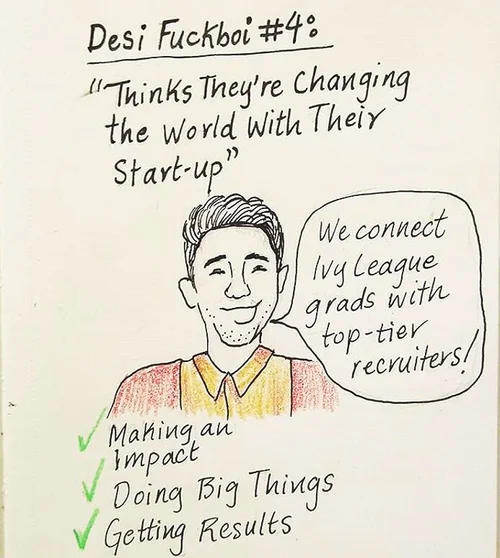 Desi Fuckboi #4:
"Thinks They're Changing
the World With Their
Start-up"
We connect
Ivy League
grads with
top-tier
recruiters!
Making an
Impact
Doing Big Things
Getting Results